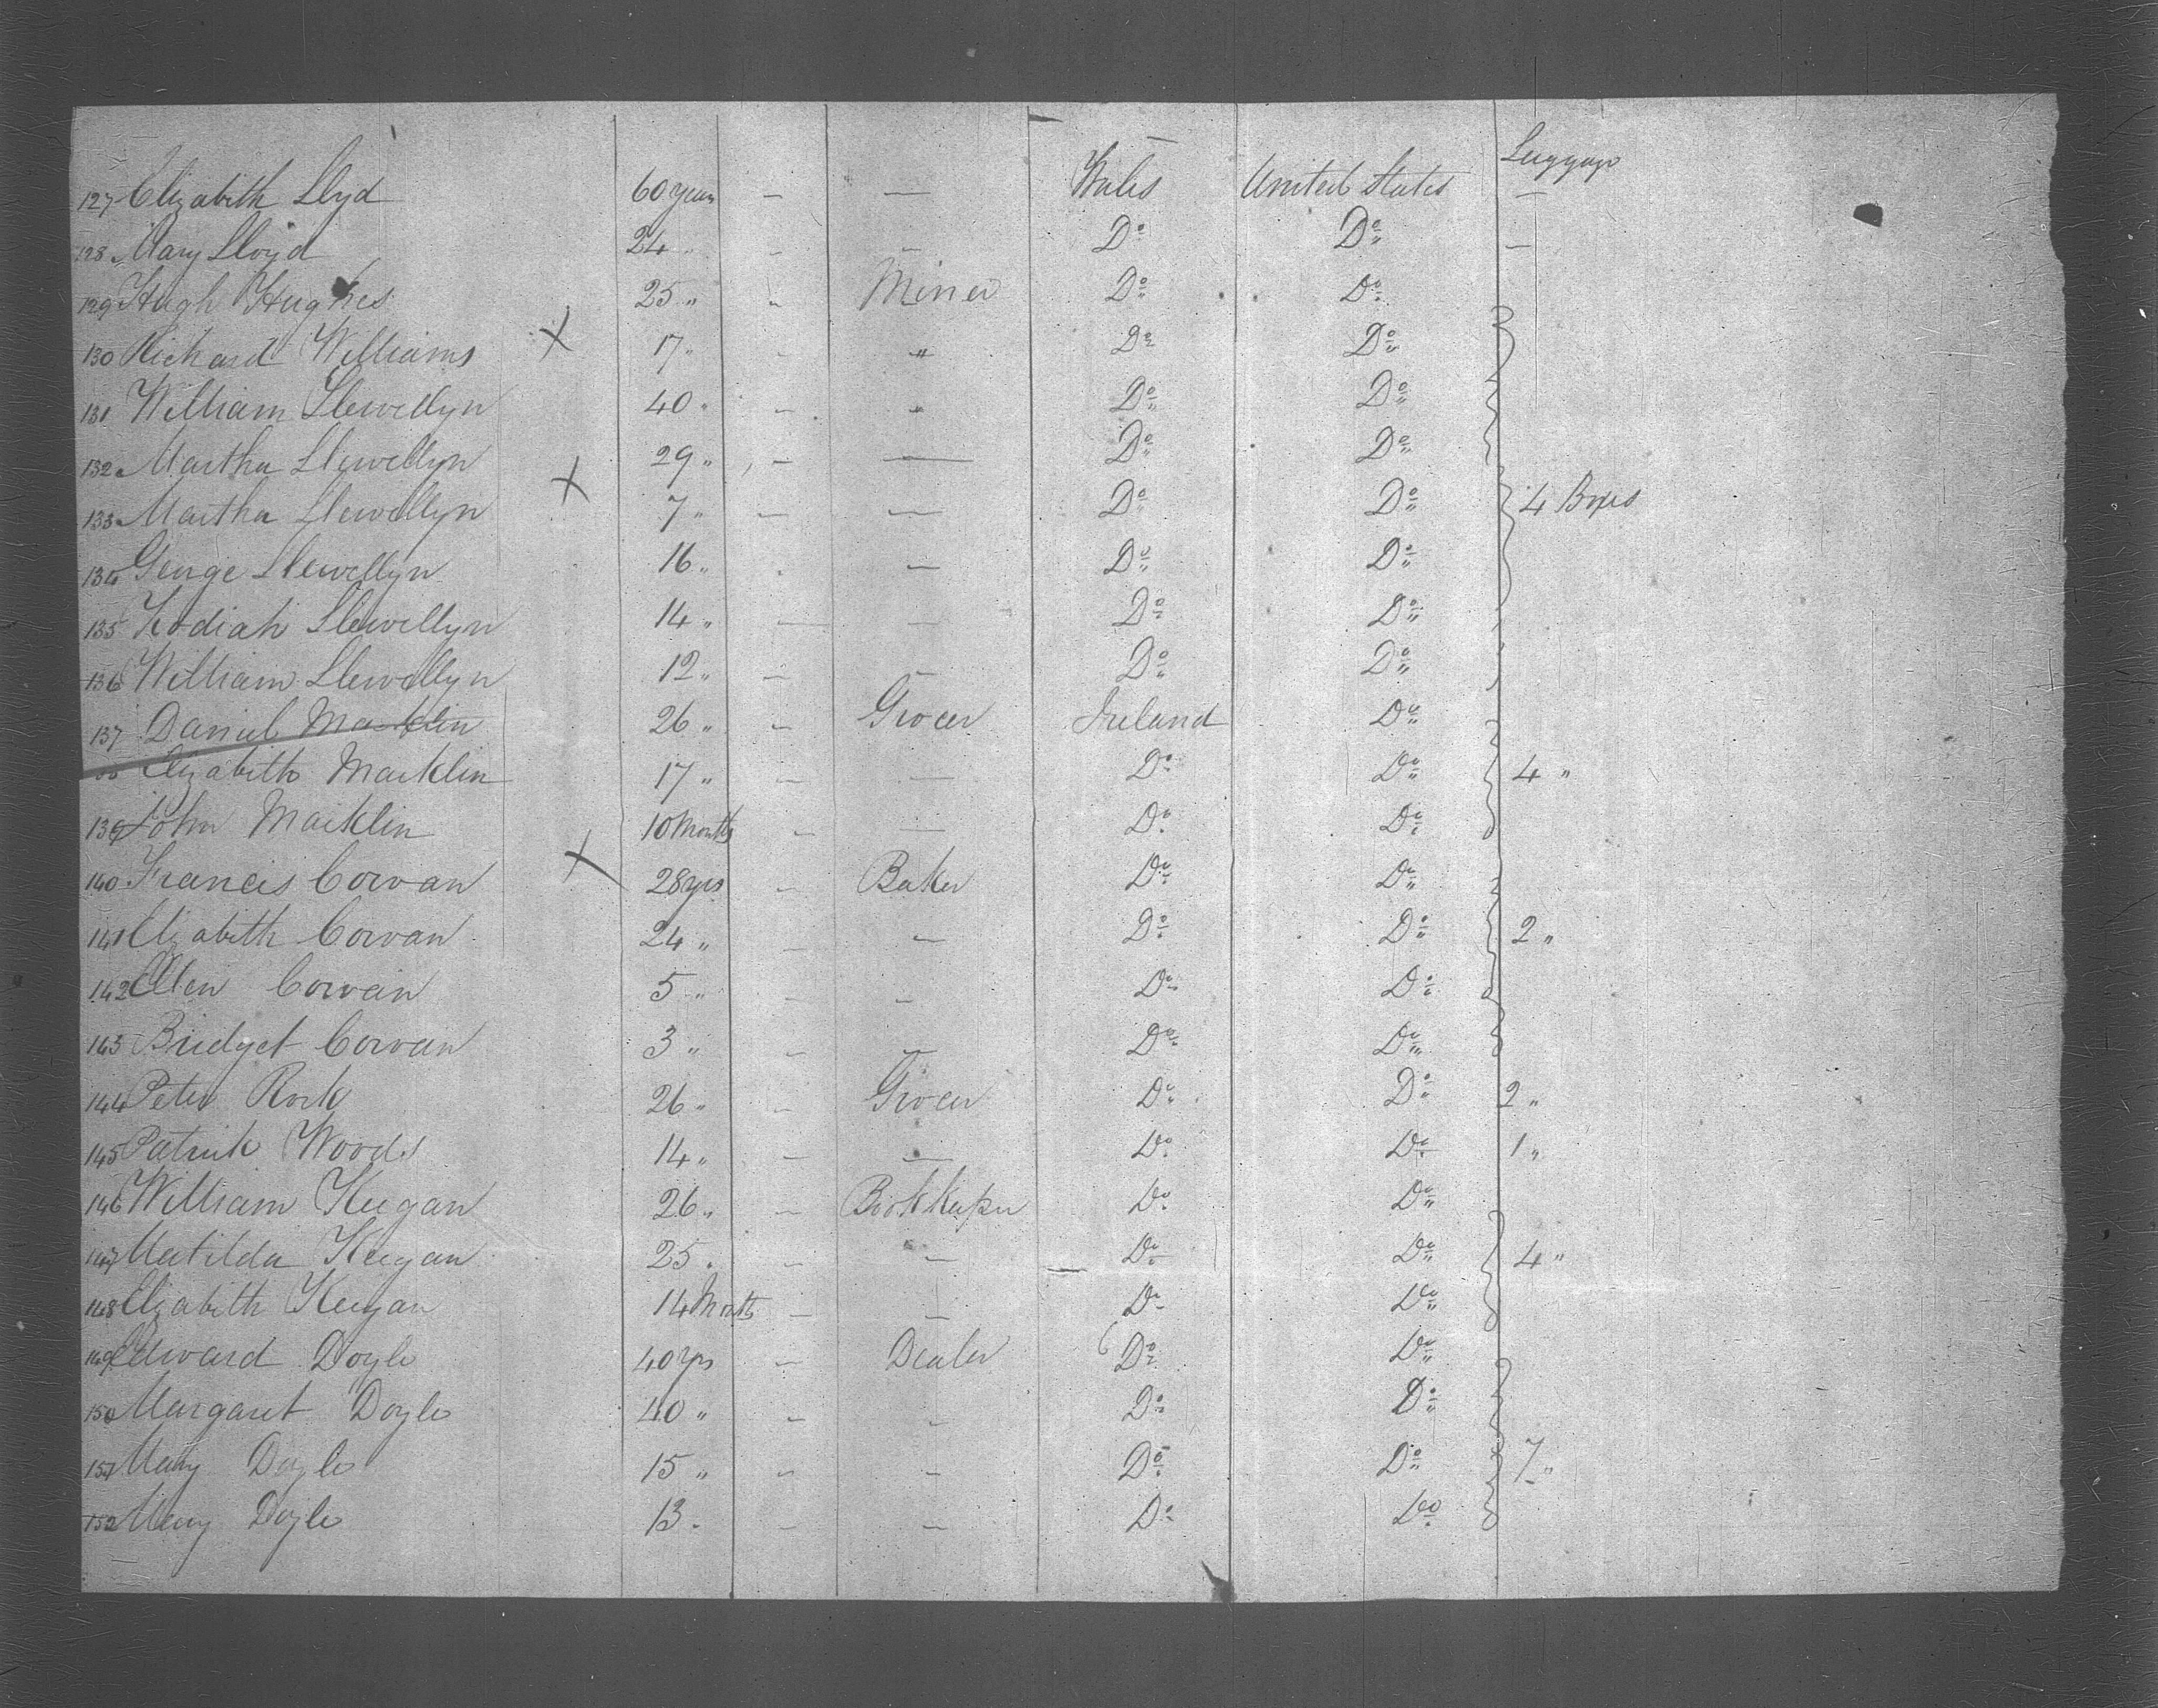 Luggage
127 Elizabeth Llyd 60 years — — Wales United States —
128 Mary Lloyd 24 " — — Do Do —
129 Hugh Hughes 25 " " Miner Do Do
130 Richard Williams X 17 " - " Do Do
131 William Llewellyn 40 " — " Do Do
132 Martha Llewellyn 29 " — — Do Do
133 Martha Llewellyn X 7 " — — Do Do 4 Boxes
134 George Llewellyn 16 " - — Do Do
135 Llewellyn 14 " — — Do Do
136 William Llewellyn 12 " — — Do Do
137 Daniel Macklin 26 " — Grocer Ireland Do
Elizabeth Macklin 17 " — — Do Do 4 "
139 John Macklin 10 Months — — Do Do
140 Francis Corvan X 28 yrs — Baker Do Do
141 Elizabeth Corvan 24 " — — Do Do 2 "
142 Ellen Corvan 5 " — — Do Do
143 Bridget Corvan 3 " — — Do Do
144 Peter Rork 26 " — Grocer Do Do 2 "
145 Patrick Woods 14 " — — Do Do 1 "
146 William Keegan 26 " — Bookkeeper Do Do
147 Matilda Keegan 25 " — — Do Do 4 "
148 Elizabeth Keegan 14 Months — — Do Do
149 Edward Doyle 40 yrs — Dealer Do Do
150 Margaret Doyle 40 " — — Do Do
151 Doyle 15 " — — Do Do 7 "
152 Mary Doyle 13 " — — Do Do